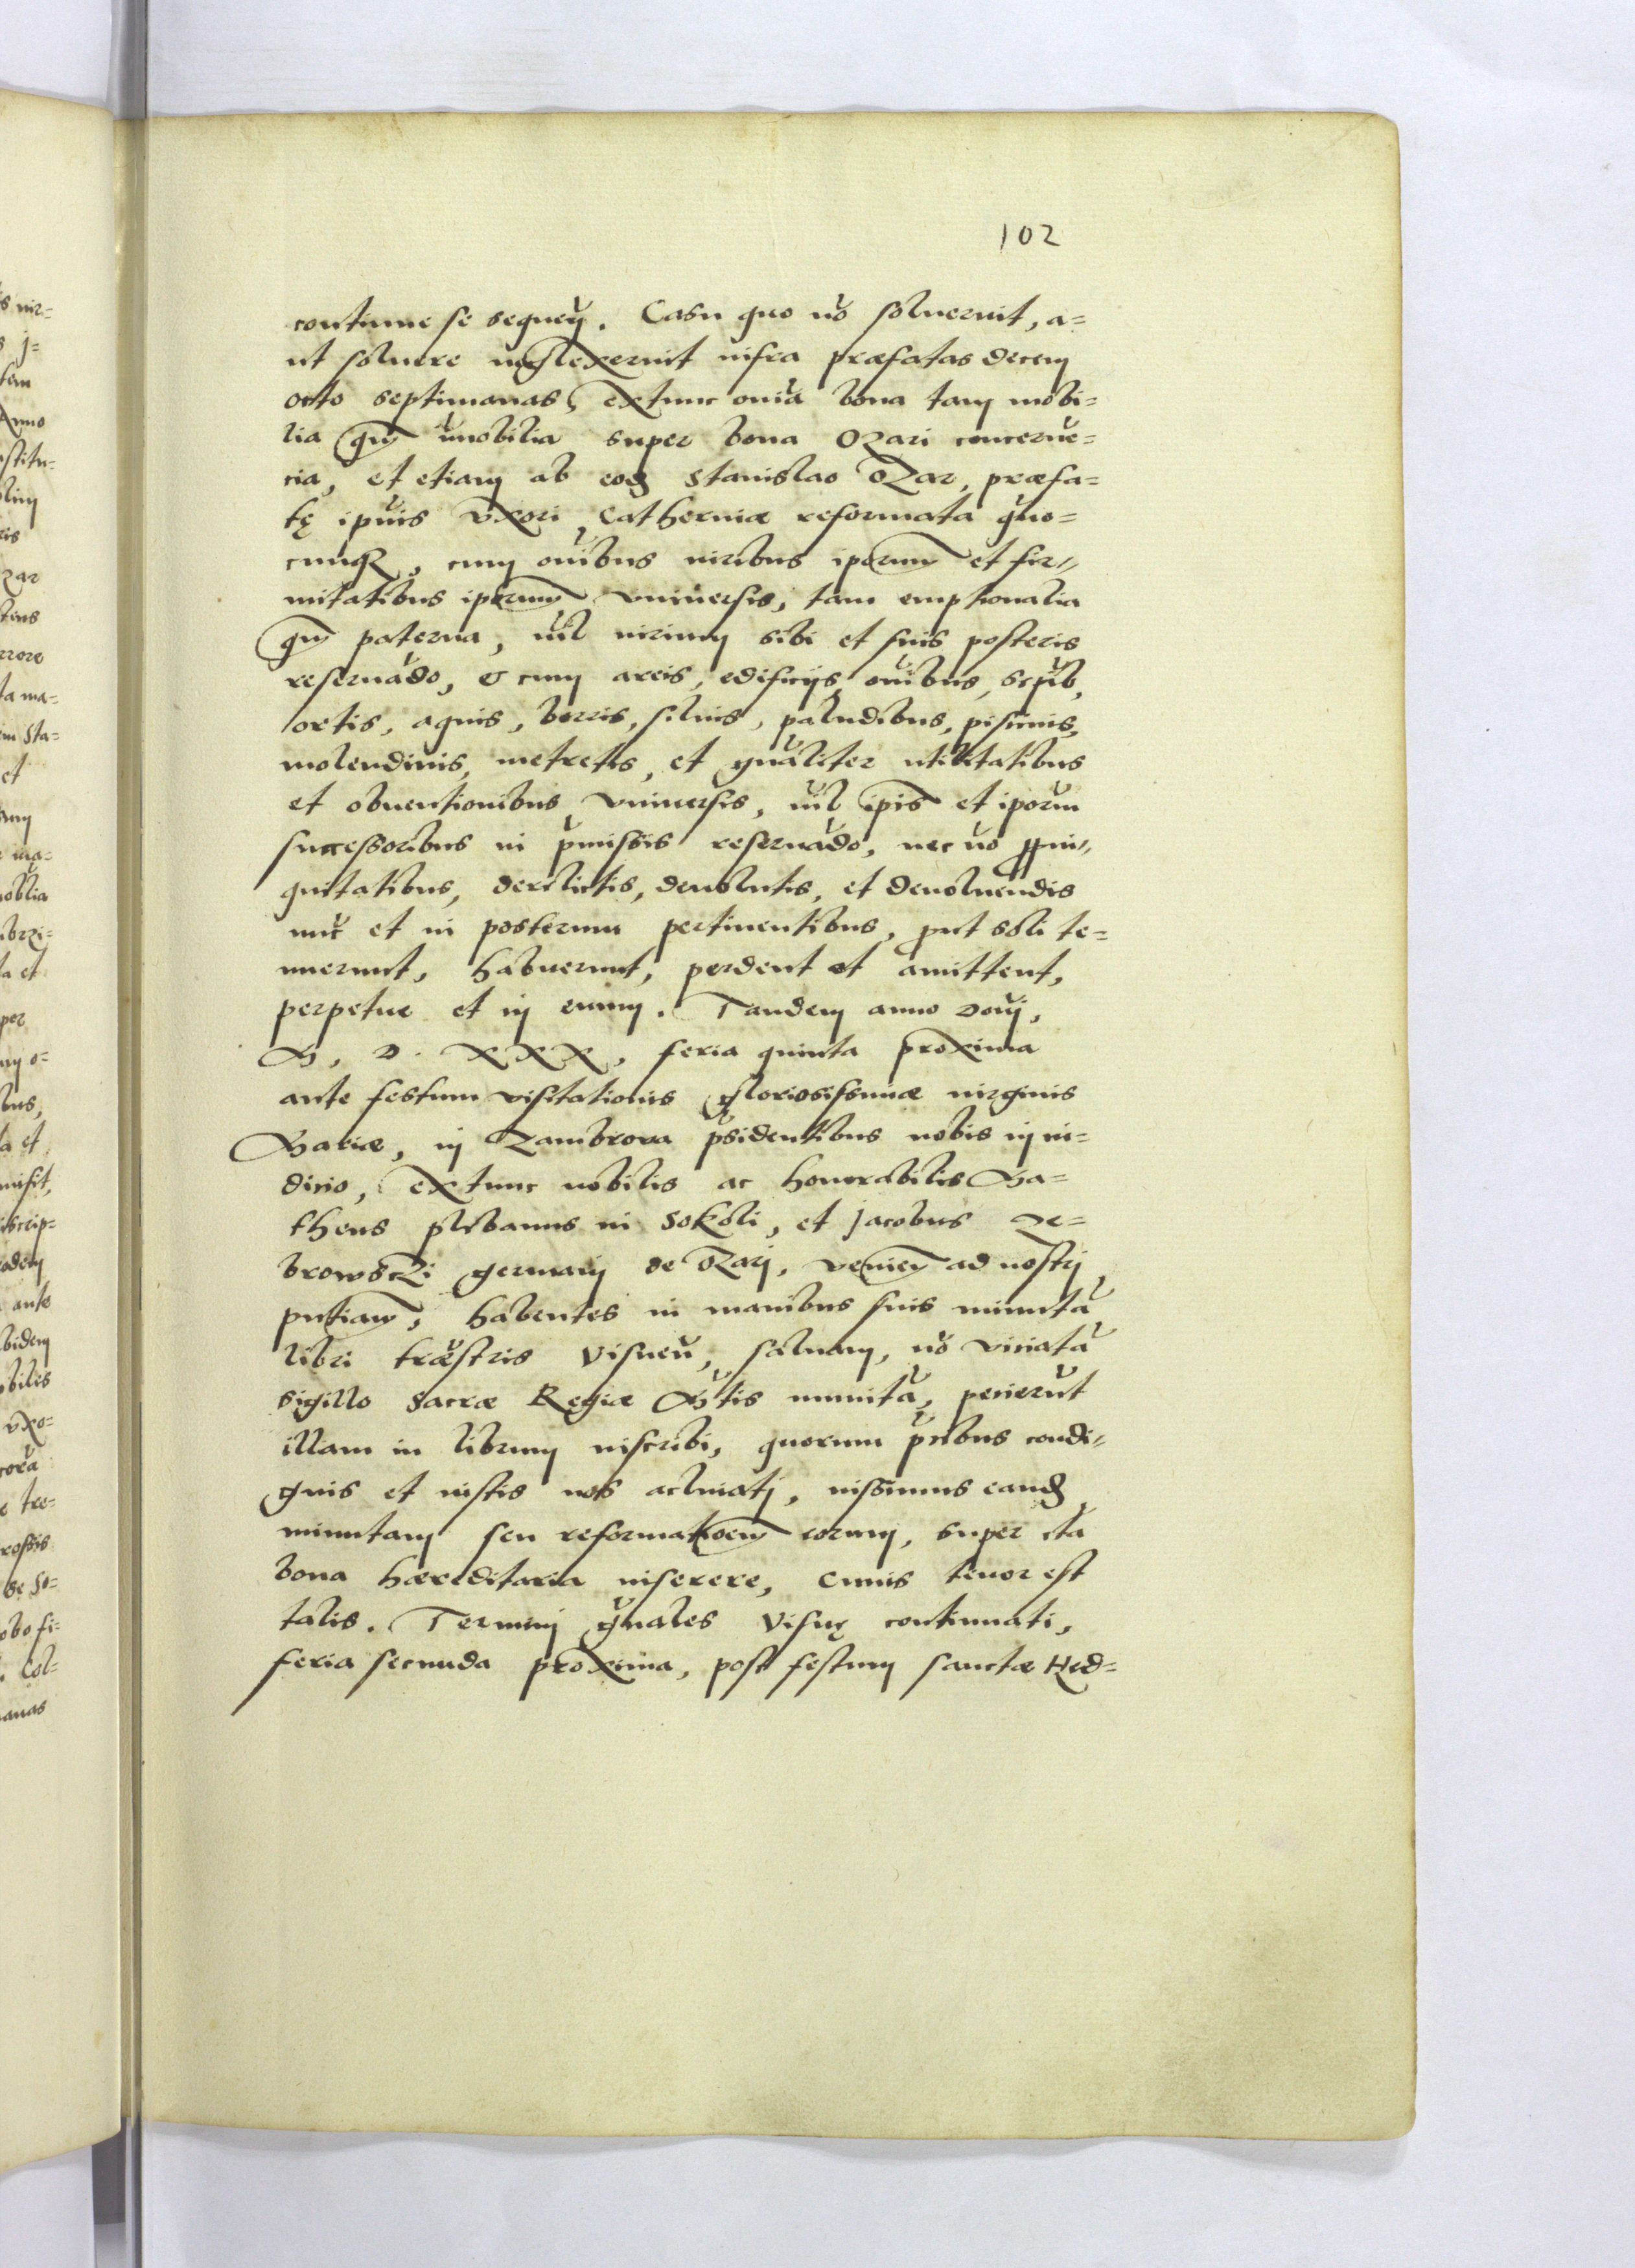 102
continue se sequeŋ. Casu quo nō soluerint, a=
ut soluere neglexerint infra præfatas decem
octo septimanas, extunc oniā bona tam mobi=
lia qm̄ īmobilia super bona Ozari concerne=
cia, et etiam ab eod Stanislao Ozar, præfa=
tę ipīus vxori Catherinæ reformata quo=
cunqȝ, cum oībus iuribus ipōrum et fir=
mitatibus ipōrum vniuersis, tam emptionalia
qm̄ paterna, nīl iurium sibi et suis posteris
reseruādo, & cum areis, edificijs, oībus,
ortis, aquis, borris, siluis, paludibus, piscinis,
molendinis, metretis, et gnāliter utilitatibus
et obuentionibus vniuersis, nīl ipīs et ipōrum
successoribus in p̄missis reseruādo, nec nō
quitatibus, derelictis, deuolutis, et deuoluendis
nūc et in posterum pertinentibus, put soli te=
nuerunt, habuerunt, perdent et amittent,
perpetue et in euum. Tandem anno Doni,
M. D. XXX, feria quinta proxima
ante festum visitationis gloriosissimæ virginis
Mariæ, in Zambrova p̄sidentibus nobis in iu=
dicio, extunc nobilis ac honorabilis Ma=
theus plebanus in Sokoli, et Jacobus De=
browsczki germani de Ozari, venien ad nostri
pntiam, habentes in manibus suis minutā
libri trēstris Visneñ, saluam, nō viciatā
sigillo Sacræ Regiæ Mtis munitā, petierūt
illam in librum inscribi, quorum p̄cibus condi=
gnis et iustis nos acliuati, iussimus eand
minutam seu reformatioem eorum, super
bona hæreditaria inserere, cuius tenor est
talis. Termini gn̄ales Visnę continuati,
feria secunda proxima, post festum Sanctæ Hed=